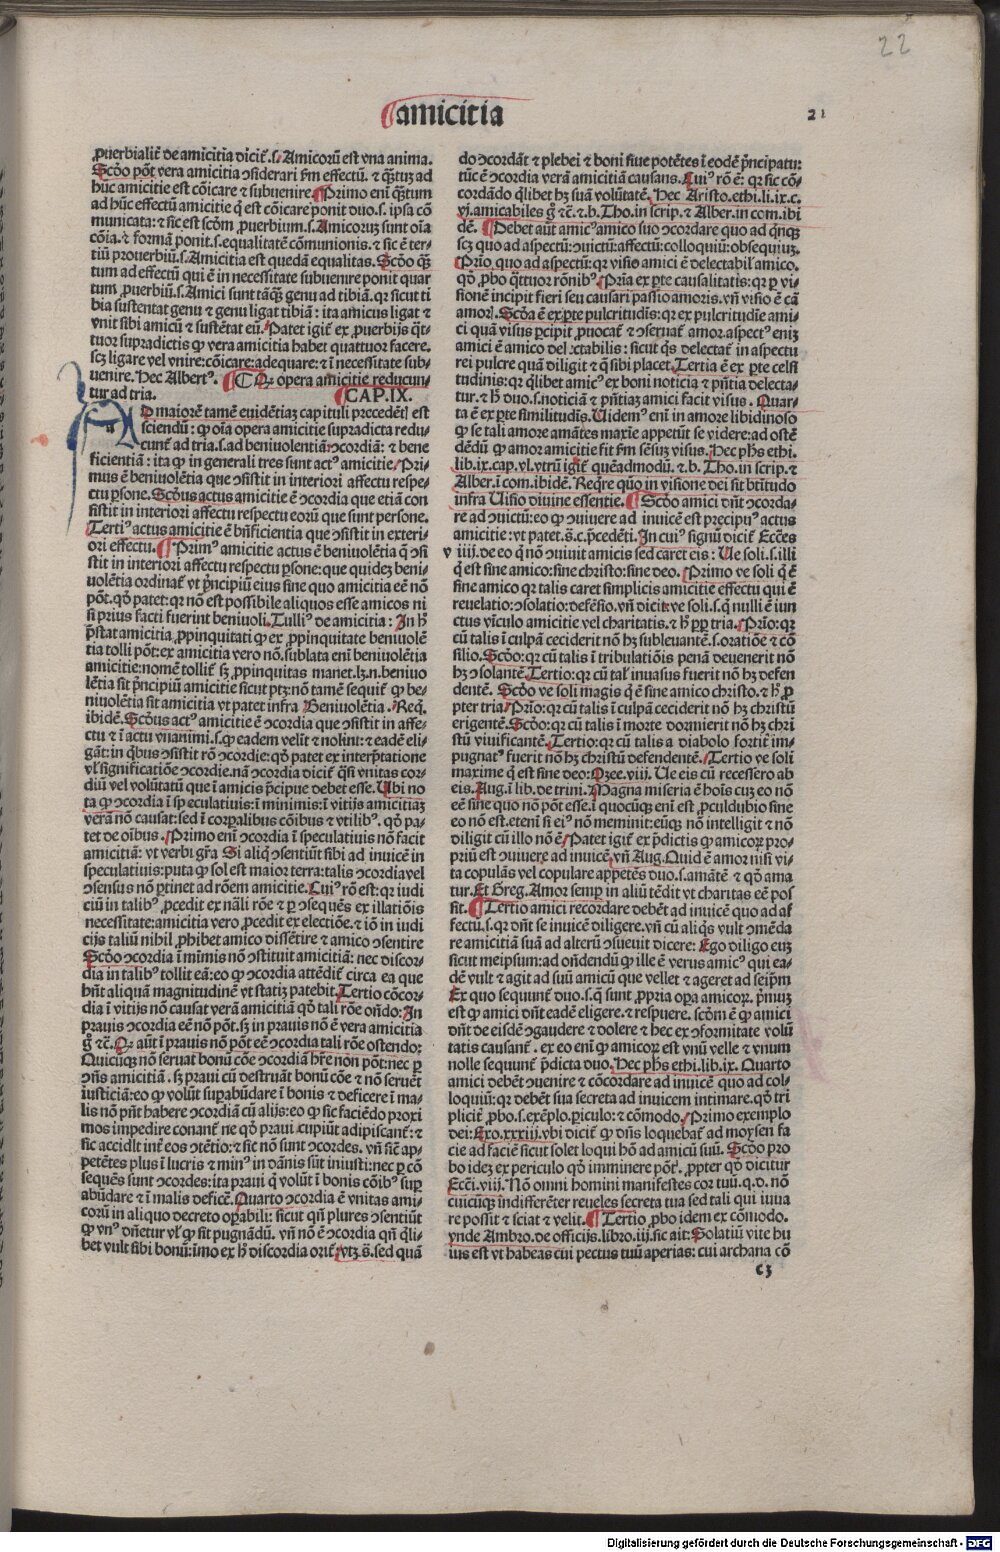 22
amicitia
21
ꝓuerbialit̃ de amicitia dicit̃.s. Amicorũ est vna anima.
Scďo põt vera amicitia ↄsiderari ẜm effectũ. ⁊ q̃ꝫtuꝫ ad
huc amicitie est cõicare ⁊ subuenire. Primo eni q̃ꝫtum
ad hũc effectũ amicitie q̃ est cõicare ponit duo.s. ipsa cõ
municata: ⁊ sic est scďm ꝓuerbium.s. Amicoruꝫ sunt oĩa
cõia. ⁊ formã ponit.s. equalitatẽ cõmunionis. ⁊ sic ẽ ter-
tiũ prouerbiũ.s. Amicitia est quedã equalitas. Scďo q̃ꝫ
tum ad effectũ qui ẽ in necessitate subuenire ponit quar
tum ꝓuerbiũ.s. Amici sunt tãq̃ꝫ genu ad tibiã. qꝛ sicut ti
bia sustentat genu ⁊ genu ligat tibiã: ita amicus ligat ⁊
vnit sibi amicũ ⁊ sustẽtat eũ. Patet igit̃ ex ꝓuerbijs q̃t-
tuor supradictis ꝙ vera amicitia habet quattuor facere.
scꝫ ligare vel vnire: cõicare: adequare: ⁊ ĩ necessitate sub-
uenire. Hec Albertꝰ. C Qꝛ opera amicitie reducun-
tur ad tria. CAP. IX.
AD maiorẽ tamẽ euidẽtiaꝫ capituli precedẽtĩ est
sciendũ: ꝙ oĩa opera amicitie supradicta redu-
cunt̃ ad tria.s. ad beniuolentiã: ↄcordiã: ⁊ bene
ficientiã: ita ꝙ in generali tres sunt actꝰ amicitie. Pri
mus ẽ beniuolẽtia que ↄsistit in interiori affectu respe-
ctu ꝑsone. Scďus actus amicitie ẽ ↄcordia que etiã con
sistit in interiori affectu respectu eorũ que sunt persone.
Tertiꝰ actus amicitie ẽ bñficientia que ↄsistit in exteri-
ori effectu. Primꝰ amicitie actus ẽ beniuolẽtia q̃ ↄsi
stit in interiori affectu respectu ꝑsone: que quidez beni-
uolẽtia ordinat̃ vt pͥncipiũ eius sine quo amicitia eẽ nõ
põt. qď patet: qꝛ nõ est possibile aliquos esse amicos ni
si prius facti fuerint beniuoli. Tulliꝰ de amicitia: In h̃
p̃stat amicitia ꝓpinquitati ꝙ ex ꝓpinquitate beniuolẽ
tia tolli põt: ex amicitia vero nõ. sublata eni beniuolẽtia
amicitie: nomẽ tollit̃ sꝫ ꝓpinquitas manet. lꝫ.n. beniuo
lẽtia sit pͥncipiũ amicitie sicut ptꝫ: nõ tamẽ sequit̃ ꝙ be-
niuolẽtia sit amicitia vt patet infra Beniuolẽtia. Req̃.
ibidẽ. Scďus actꝰ amicitie ẽ ↄcordia que ↄsistit in affe-
ctu ⁊ ĩ actu vnanimi.s. ꝙ eadem velĩt ⁊ nolint: ⁊ eadẽ eli-
gãt: in q̃bus ↄsistit rõ ↄcordie: qď patet ex interp̃tatione
vl̃ significatiõe ↄcordie. nã ↄcordia dicit̃ q̃si vnitas cor-
diũ vel volũtatũ que ĩ amicis p̃cipue debet esse. Ubi no
ta ꝙ ↄcordia ĩ speculatiuis: ĩ minimis: ĩ vitijs amicitiaꝫ
verã nõ causat: sed ĩ corꝑalibus cõibus ⁊ vtilibꝰ. qď pa-
tet de oĩbus. Primo eni ↄcordia ĩ speculatiuis nõ facit
amicitiã: vt verbi gr̃a Si aliq̃ ↄsentiũt sibi ad inuicẽ in
speculatiuis: puta ꝙ sol est maior terra: talis ↄcordia vel
ↄsensus nõ ꝑtinet ad rõem amicitie. Cuiꝰ rõ est: qꝛ iudi
ciũ in talibꝰ ꝓcedit ex nãli rõe ⁊ ꝑ ↄsequẽs ex illatiõis
necessitate: amicitia vero ꝓcedit ex electiõe. ⁊ iõ in iudi
cijs taliũ nihil ꝓhibet amico dissẽtire ⁊ amico ↄsentire
Scďo ↄcordia ĩ mĩmis nõ ↄstituit amicitiã: nec discor-
dia in talibꝰ tollit eã: eo ꝙ ↄcordia attẽdit̃ circa ea que
hñt aliquã magnitudinẽ vt statiꝫ patebit. Tertio cõcor-
dia ĩ vitijs nõ causat verã amicitiã qď tali rõe oñdo: In
prauis ↄcordia eẽ nõ põt. sꝫ in prauis nõ ẽ vera amicitia
g̃ ⁊c̃. Qꝛ aũt ĩ prauis nõ põt eẽ ↄcordia tali rõe ostendo:
Quicũqꝫ nõ seruat bonũ cõe ↄcordiã hr̃e non põt: nec ꝑ
ↄñs amicitiã. sꝫ praui cũ destruãt bonũ cõe ⁊ nõ seruẽt
iusticiã: eo ꝙ volũt suꝑabũdare ĩ bonis ⁊ deficere ĩ ma-
lis nõ pñt habere ↄcordiã cũ alijs: eo ꝙ sic faciẽdo proxi
mos impedire conant̃ ne qď praui cupiũt adipiscant̃: ⁊
sic accidit int̃ eos ↄtẽtio: ⁊ sic nõ sunt ↄcordes. vñ sic ap-
petẽtes plus ĩ lucris ⁊ minꝰ in dãnis sũt iniusti: nec ꝑ cõ
sequẽs sunt ↄcordes: ita praui q̃ volũt ĩ bonis cõibꝰ suꝑ
abũdare ⁊ ĩ malis deficẽ. Quarto ↄcordia ẽ vnitas ami-
corũ in aliquo decreto oꝑabili: sicut qñ plures ↄsentiũt
ꝙ vnꝰ dñetur vl̃ ꝙ sit pugnãdũ. vñ nõ ẽ ↄcordia qñ q̃li-
bet vult sibi bonũ: imo ex h̃ discordia orit̃. vtꝫ s̃. sed quã
do ↄcordãt ⁊ plebei ⁊ boni siue potẽtes ĩ eodẽ pͥncipatu:
tũc ẽ ↄcordia verã amicitiã causans. Cuiꝰ rõ ẽ: qꝛ sic cõ-
cordãdo q̃libet hꝫ suã volũtatẽ. Hec Aristo. ethi. li. ix. c.
vj. amicabiles g̃ ⁊c̃. ⁊ b. Tho. in scrip. ⁊ Alber. in com. ibi
dẽ. Debet aũt amicꝰ amico suo ↄcordare quo ad q̃nqꝫ
scꝫ quo ad aspectũ: ↄuictũ: affectũ: colloquiũ: obsequiuꝫ.
Prĩo quo ad aspectũ: qꝛ visio amici ẽ delectabil̃ amico.
qď ꝓbo q̃ttuor rõnibꝰ. Prĩa ex ꝑte causalitatis: qꝛ ꝑ vi-
sionẽ incipit fieri seu causari passio amoris. vñ visio ẽ cã
amoꝝ. Scďa ẽ ex ꝑte pulcritudĩs: qꝛ ex pulcritudĩe ami-
ci quã visus ꝑcipit ꝓuocat̃ ⁊ ↄseruat̃ amor. aspectꝰ eniꝫ
amici ẽ amico delectabilis: sicut q̃s delectat̃ in aspectu
rei pulcre quã diligit ⁊ q̃ sibi placet. Tertia ẽ ex ꝑte celsi
tudinis: qꝛ q̃libet amicꝰ ex boni noticia ⁊ pñtia delecta-
tur. ⁊ h̃ duo.s. noticiã ⁊ pñtiaꝫ amici facit visus. Quar-
ta ẽ ex ꝑte similitudĩs. Uidemꝰ eni in amore libidinoso
ꝙ se tali amore amãtes maxĩe appetũt se videre: ad ostẽ
dẽdũ ꝙ amor amicitie fit ẜm sẽsuꝫ visus. Hec phs̃ ethi.
lib. ix. cap. vl. vtrũ igit̃ quẽadmodũ. ⁊ b. Tho. in scrip. ⁊
Alber. ĩ com. ibidẽ. Req̃re quo in visione dei sit btĩtudo
infra Uisio diuine essentie. Scďo amici dñt ↄcorda-
re ad ↄuictũ: eo ꝙ ↄuiuere ad inuicẽ est precipuꝰ actus
amicitie: vt patet. s̃. c. p̃cedẽti. In cuiꝰ signũ dicit̃ Ecc̃es
iiij. de eo q̃ nõ ↄuiuit amicis sed caret eis: Ue soli.s. illi
q̃ est sine amico: sine christo: sine deo. Primo ve soli q̃ ẽ
sine amico qꝛ talis caret simplicis amicitie effectu qui ẽ
reuelatio: ↄsolatio: defẽsio. vñ dicit̃ ve soli.s. q̃ nulli ẽ iun
ctus vĩculo amicitie vel charitatis. ⁊ h̃ ꝓp tria. Prĩo: qꝛ
cũ talis ĩ culpã ceciderit nõ hꝫ subleuantẽ.s. oratiõe ⁊ cõ
silio. Scďo: qꝛ cũ talis ĩ tribulatiõis penã deuenerit nõ
hꝫ ↄsolantẽ. Tertio: qꝛ cũ tal̃ inuasus fuerit nõ hꝫ defen
dentẽ. Scďo ve soli magis q̃ ẽ sine amico christo. ⁊ h̃ ꝓ
pter tria. Prĩo: qꝛ cũ talis ĩ culpã ceciderit nõ hꝫ christũ
erigentẽ. Scďo: qꝛ cũ talis ĩ morte dormierit nõ hꝫ chri
stũ viuificantẽ. Tertio: qꝛ cũ talis a diabolo fortit̃ im-
pugnatꝰ fuerit nõ hꝫ christũ defendentẽ. Tertio ve soli
maxime q̃ est sine deo: Ozee. viij. Ue eis cũ recessero ab
eis. Aug. ĩ lib. de trini. Magna miseria ẽ hoĩs cuꝫ eo nõ
eẽ sine quo nõ põt esse. ĩ quocũqꝫ eni est ꝓculdubio sine
eo nõ est. eteni si eiꝰ nõ meminit: eũqꝫ nõ intelligit ⁊ nõ
diligit cũ illo nõ ẽ. Patet igit̃ ex p̃dictis ꝙ amicoꝝ pro-
priũ est ↄuiuere ad inuicẽ. vñ Aug. Quid ẽ amor nisi vi-
ta copulãs vel copulare appetẽs duo.s. amãtẽ ⁊ qď ama
tur. Et Greg. Amor semꝑ in aliũ tẽdit vt charitas eẽ pos
sit. Tertio amici recordare debẽt ad inuicẽ quo ad af
fectũ.s. qꝛ dñt se inuicẽ diligere. vñ cũ aliq̃s vult ↄmẽda
re amicitiã suã ad alterũ ↄsueuit dicere: Ego diligo euꝫ
sicut meipsum: ad oñdendũ ꝙ ille ẽ verus amicꝰ qui ea-
dẽ vult ⁊ agit ad suũ amicũ que vellet ⁊ ageret ad seip̃m
Ex quo sequunt̃ duo.s. q̃ sunt ꝓpria oꝑa amicoꝝ. pͥmuꝫ
est ꝙ amici dñt eadẽ eligere. ⁊ respuere. scďm ẽ ꝙ amici
dñt de eisdẽ ↄgaudere ⁊ dolere ⁊ hec ex ↄformitate volũ
tatis causant̃. ex eo eni ꝙ amicoꝝ est vnũ velle ⁊ vnum
nolle sequunt̃ p̃dicta duo. Hec phs̃ ethi. lib. ix. Quarto
amici debẽt ↄuenire ⁊ cõcordare ad inuicẽ quo ad col-
loquiũ: qꝛ debẽt sua secreta ad inuicem intimare. qď tri
plicit̃ ꝓbo.s. exẽplo. ꝑiculo: ⁊ cõmodo. Primo exemplo
dei: Exo. xxxiij. vbi dicit̃ ꝙ dñs loquebat̃ ad moysen fa
cie ad faciẽ sicut solet loqui hõ ad amicũ suũ. Scďo pro
bo ideꝫ ex periculo qď imminere põt. ꝓpter qď dicitur
Ecc̃i. viij. Nõ omni homini manifestes cor tuũ. q.d. nõ
cuicũqꝫ indifferẽter reueles secreta tua sed tali qui iuua
re possit ⁊ sciat ⁊ velit. Tertio ꝓbo idem ex cõmodo.
vnde Ambro. de officijs. libro. iij. sic ait: Solatiũ vite hu
ius est vt habeas cui pectus tuũ aperias: cui archana cõ
c3
Digitalisierung gefördert durch die Deutsche Forschungsgemeinschaft - DFG